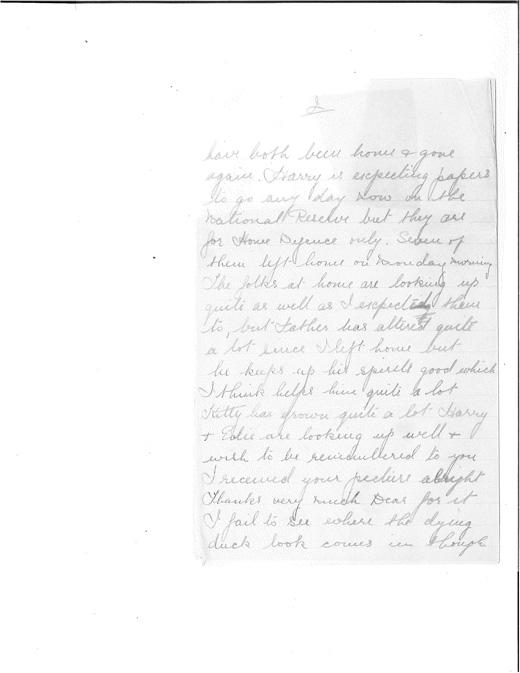 have both been home & gone
again. Harry is expecting papers
to go any day now in the
National Reserve but they are
for Home Defence only. Seven of
them left home on Monday morning
The folks at home are looking up
quite as well as I expected them
to, but Father has altered quite
a lot since I left home but
he keeps up his spirits good which
I think helps him quite a lot
Kitty has grown quite a lot Harry
& Edie are looking up well &
wish to be remembered to you
I received your picture alright
Thanks very much Dear for it
I fail to see where the dying
duck look comes in though